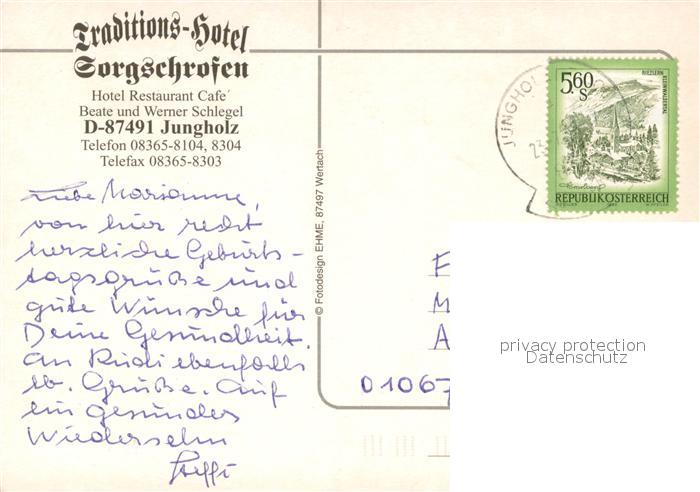 Traditions-Hotel
Sorgschrofen
Hotel Restaurant Cafe´
Beate und Werner Schlegel
D-87491 Jungholz
Telefon 08365-8104, 8304
Telefax 08365-8303
Liebe Marianne,
von hier recht
herzliche Geburts-
tagsgrüße und
gute Wünsche für
Deine Gesundheit.
An Rudi ebenfalls
lb. Grüße. Auf
ein gesundes
Wiedersehn
Steffi
© Fotodesign EHME, 87497 Wertach
JUNGHOL
23.
5.60
S
RIEZLERN
KLEINWALSERTAL
REPUBLIK ÖSTERREICH
F
M
A
01067
privacy protection
Datenschutz